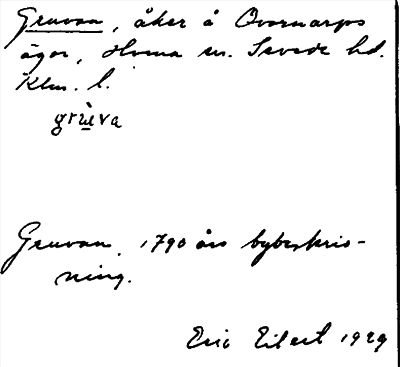 Gruvan, åker å Övernarps
ägor, Hvena sn. Sevede hd.
Klm. l.
grùva
Gruvan. 1790 års bybeskriv-
ning.
Eric Eilert 1929